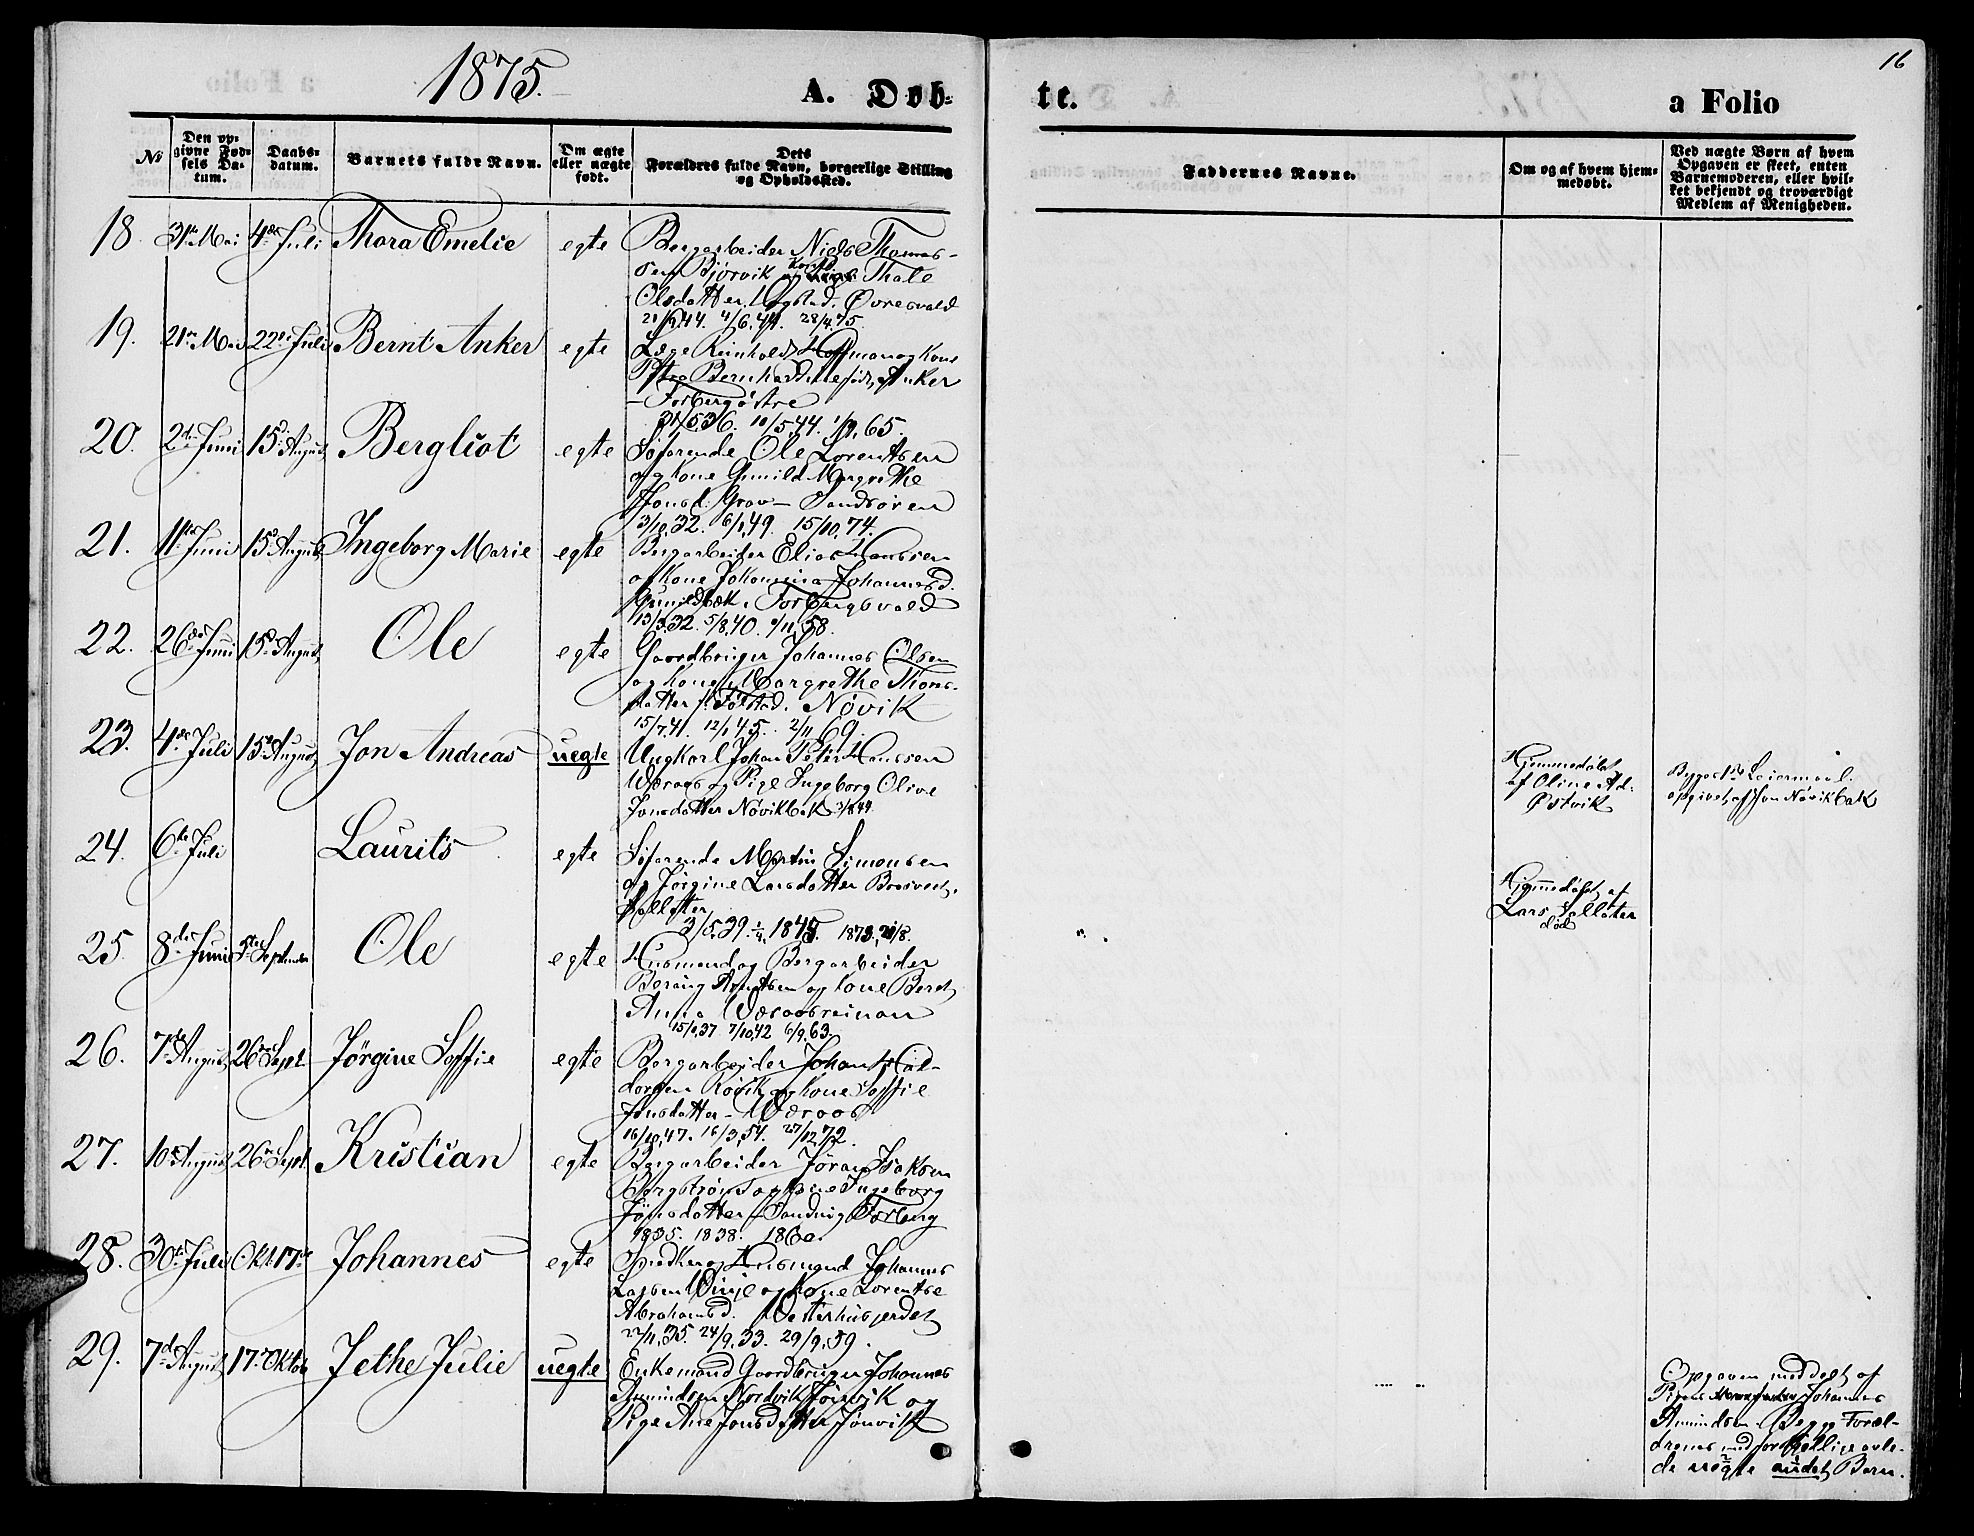 1875.
A. Døb-
te.
a Folio
16
No
Den op-
givne Fød-
sels Da-
tum.
Daabs-
datum.
Barnets fulde Navn.
Om ægte
eller uægte
født.
Dets
Forældres fulde Navn, borgerlige Stilling
og Opholdssted.
Faddernes Navne.
Om og af hvem hjem-
medøbt.
Ved uægte Børn af hvem
Opgaven er skeet, enten
Barnemoderen, eller hvil-
ket bekjendt og troværdigt
Medlem af Menigheden.
18. 31te Mai 4de Juli Thora Emelie egte Bergarbeider Niels Thomas-
sen Bjørvik og Kone Thale
Olsdatter Øvresvald
4/6,44. 28/4,75.
19. 21de Mai 22de Juli Bernt Anker egte Læge Reinholdt Hoffman og Kone
Petra Bernhardine født Anker
Forberg østre
31/5,36. 10/5,44. 65.
20. 2den Juni 15de August Bergliot egte Søfarende Ole Lorentsen
og Kone Gunild Margrethe
Jonsd. Grav – Sandsøren
3/10,32. 6/1,49. 15/10,74.
21. 11te Juni 15de August Ingeborg Marie egte Bergarbeider Elias Hanssen
og Kone Johannesd.
Forbergsvald
13/3,32. 5/8,40. 58.
22. 26de Juni 15de August Ole egte Gaardbruger Johannes Olsen
og Kone Margrethe Thoms-
datter f. Følstad. Növik
15/7,41. 12/1,45. 2/11,69.
23. 4de Juli 15de August Jon Andreas uegte Ungkarl Johan Peter Hanssen
Væraas og Pige Ingeborg Olive
Jonsdatter Növikbak 3/8,49
Hjemmedøbt
af Oline Ad.
Østvik
Begges 1ste Leiermaal.
opgivet af Jon Növikbak
24. 6te Juli Laurits egte Søfarende Martin Simonsen
og Jørgine Larsdatter
3/5,39. 1845. 1873,
Hjemmedøbt af
Lars
død
25. 8de Juni 5te September Ole egte Husmand og Bergarbeider
Arntsen og Kone Beret
Anna Væraasreinan
15/1,37 7/10,42 6/9,63.
26. 7de August 26de Sept. Jørgine Soffie egte Bergarbeider Johan Hal-
dorsen Rövik og Kone Soffie
Jonsdatter – Væraas
16/10,47. 16/3,54. 27/12,72.
27. 10de August 26de Sept. Kristian egte Bergarbeider Jöran Isaksen
Bergström og Kone Ingeborg
Jönsdatter – Sandvig Forberg
1835. 1838. 1860.
28. 30te Juli Okt. 17de Johannes egte Snedker og Husmand Johannes
Larsen Vinje og Kone Lorentse
Abrahamsd. Vesterhusjerdet
22/11,35. 24/9,33. 29/9,59.
29. 7de August 17de Oktob Jethe Julie uegte Enkemand Gaardbruger Johannes
Amundsen Nordvik Jönvik og
Pige Ane Jonsdatter Jönvik
Opgaven meddelt af
Pigens Johannes
Amundsen. Begge Foræl-
drenes med forskjellige avle-
de uegte andet Barn.